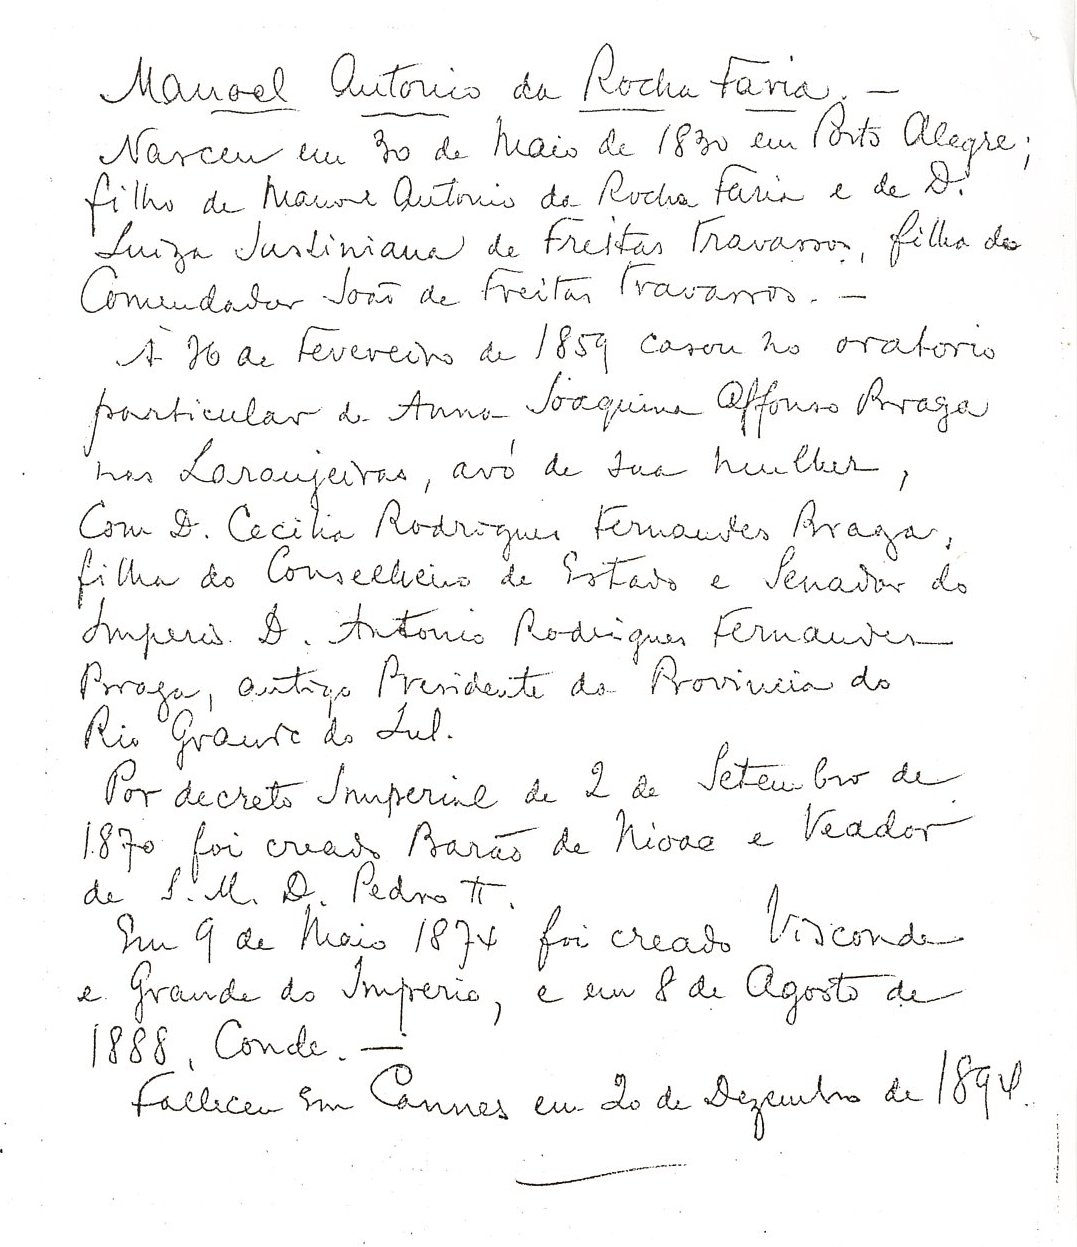 Manoel Antonio da Rocha Faria. —
Nasceu em 30 de Maio de 1830 em Porto Alegre;
filho de Manoel Antonio da Rocha Faria e de D.
Luiza Justiniana de Freitas Travassos, filha do
Comendador João de Freitas Travassos. —
À 26 de Fevereiro de 1859 casou no oratorio
particular de Anna Joaquina Affonso Braga
nas Laranjeiras, avó de sua mulher,
Com D. Cecilia Rodrigues Fernandes Braga,
filha do Conselheiro de Estado e Senador do
Imperio D. Antonio Rodrigues Fernandes
Braga, antigo Presidente da Provincia do
Rio Grande do Sul.
Por decreto Imperial de 2 de Setembro de
1870 foi creado Barão de Nioac e Veador
de S. M. D. Pedro II.
Em 9 de Maio 1874 foi creado Visconde
e Grande do Imperio, e em 8 de Agosto de
1888, Conde. —
Falleceu em Cannes em 20 de Dezembro de 1894.